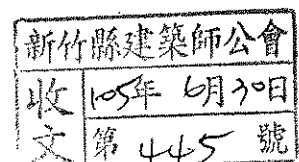 新竹縣建築師公會
收文
105年 6月30日
第 445 號